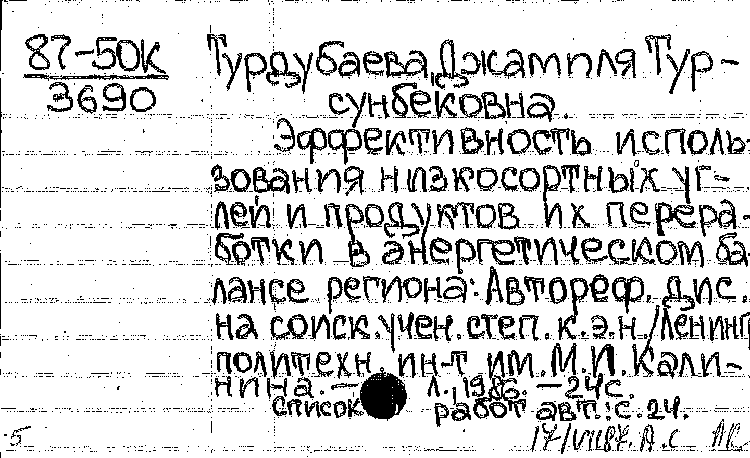 87-50К
3690
Турдубаева, Джамиля Тур-
сунбековна.
Эффективность исполь-
зования низкосортных уг-
лей и продуктов их перера-
ботки в энергетическом ба-
лансе региона: Автореф. дис.
на соиск. учен. степ. к.э.н./Ленингр
политехн. ин-т им. М.И. Кали-
нина. — Л., 1986. — 24 с.
Список работ авт.: с. 24.
5 17/VII 87. А.С